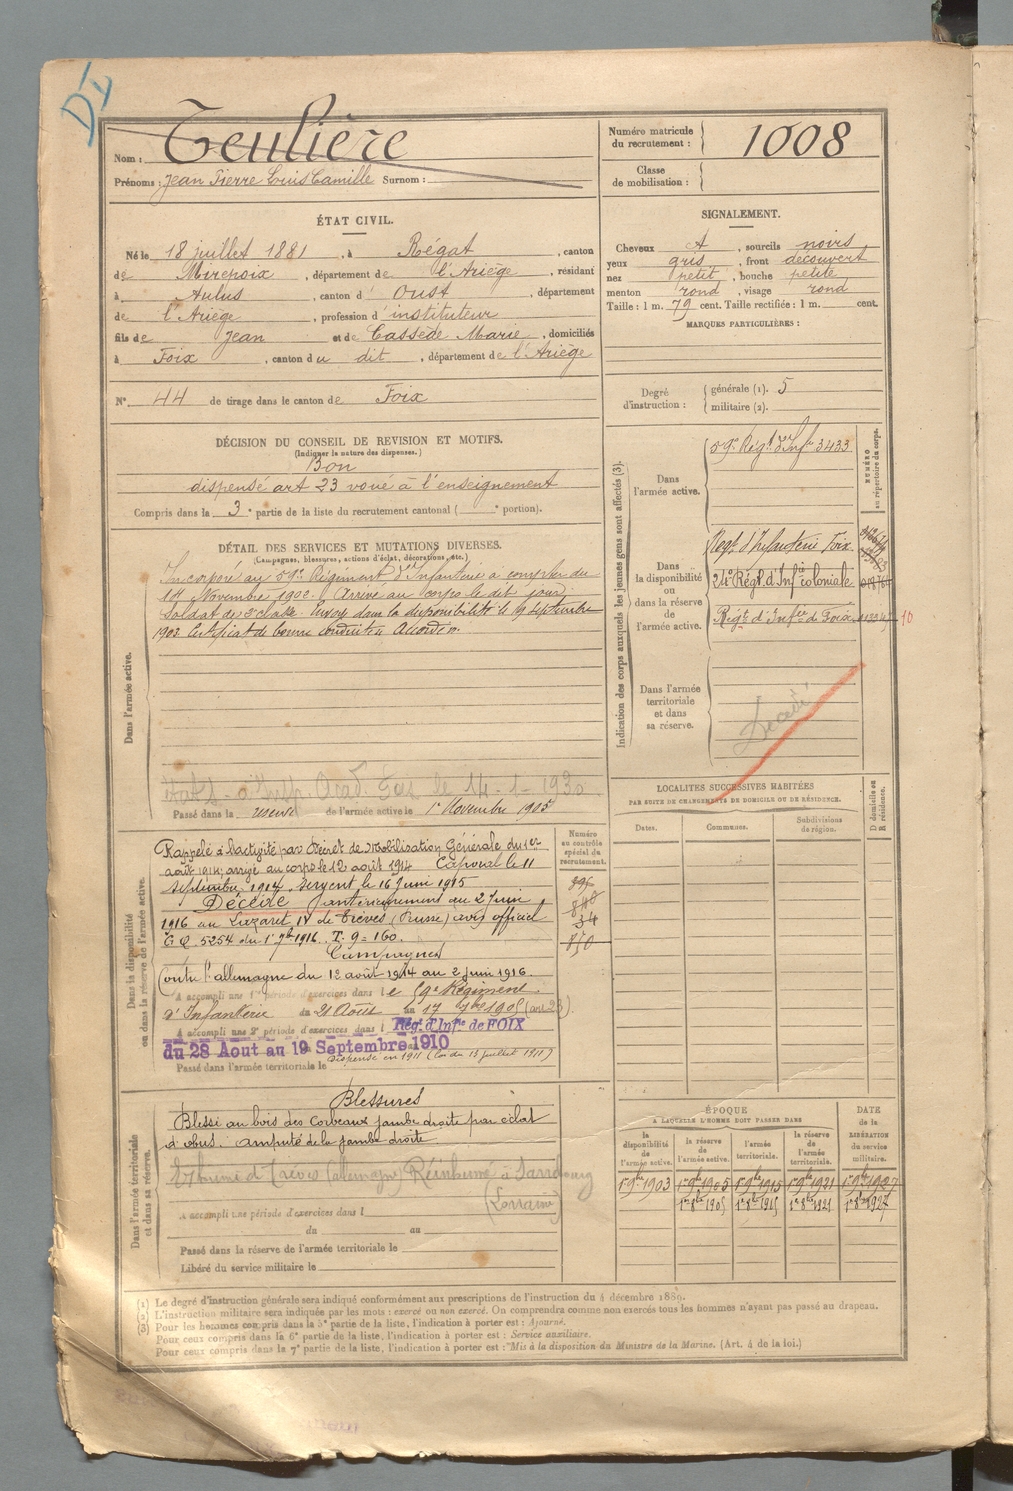 DI
Nom : Teulière
Prénoms : Jean Pierre Louis Camille Surnom :
Numéro matricule du recrutement : 1008
Classe de mobilisation :
ÉTAT CIVIL.
Né le 18 juillet 1881, à Régat, canton
de Mirepoix, département de l'Ariège, résidant
à Aulus, canton d' Oust, département
de l'Ariège, profession d'instituteur
fils de Jean et de Cassède Marie, domiciliés
à Foix, canton du dit, département de l'Ariège
N° 44 de tirage dans le canton de Foix
SIGNALEMENT.
Cheveux , sourcils noirs
yeux gris, front découvert
nez petit, bouche petite
menton rond, visage rond
Taille : 1 m. 79 cent. Taille rectifiée : 1 m. cent.
MARQUES PARTICULIÈRES :
Degré d'instruction : générale (1). 5
militaire (2).
DÉCISION DU CONSEIL DE REVISION ET MOTIFS.
(Indiquer la nature des dispenses.)
Bon
dispensé art 23 voué à l'enseignement
Compris dans la 3e partie de la liste du recrutement cantonal ( e portion).
DÉTAIL DES SERVICES ET MUTATIONS DIVERSES.
(Campagnes, blessures, actions d'éclat, décorations, etc.)
Dans l'armée active.
Incorporé au 59e Régiment d'Infanterie à compter du
14 Novembre 1902. Arrivé au corps le dit jour.
Soldat de 2e classe. Envoyé dans la disponibilité le 19 septembre
1903. Certificat de bonne conduite Accordé.
Acad. le 14-1-1930
Passé dans la réserve de l'armée active le 1er Novembre 1905
Indication des corps auxquels les jeunes gens sont affectés (3).
NUMÉRO au répertoire du corps.
Dans l'armée active.
59e Régt d'Infie 3433
Dans la disponibilité ou dans la réserve de l'armée active.
Régt d'Infanterie Foix
24e Régt d'Infie coloniale
Régt d'Infie de Foix
10
Dans l'armée territoriale et dans sa réserve.
Décédé
LOCALITÉS SUCCESSIVES HABITÉES
PAR SUITE DE CHANGEMENTS DE DOMICILE OU DE RÉSIDENCE.
Dates.
Communes.
Subdivisions de région.
D domicile ou R résidence.
Dans la disponibilité ou dans la réserve de l'armée active.
Numéro au contrôle spécial du recrutement.
Rappelé à l'activité par Décret de Mobilisation Générale du 1er
août 1914, arrivé au corps le 12 août 1914 Caporal le 11
septembre 1914, sergent le 16 juin 1915
Décédé antérieurement au 2 juin
1916 au Lazaret IV de Trèves (Prusse) avis officiel
5254 du 1er 7bre 1916. T. 9=160.
34
850
Campagnes
Contre l'allemagne du 12 août 1914 au 2 juin 1916.
A accompli une 1re période d'exercices dans le 59e Régiment
d'Infanterie du 21 Août au 17 7bre 1905 (art 23).
A accompli une 2e période d'exercices dans l Régt. d'Infie de FOIX
du 28 Aout au 19 Septembre 1910
Dispensé en 1911 (loi du 13 juillet 1911)
Passé dans l'armée territoriale le
Dans l'armée territoriale et dans sa réserve.
Blessures
Blessé au bois des Corbeaux jambe droite par éclat
d'obus. amputé de la jambe droite.
Inhumé à Trèves (allemagne) Réinhumé à Sarrebourg
(Lorraine)
A accompli une période d'exercices dans l
du au
Passé dans la réserve de l'armée territoriale le
Libéré du service militaire le
ÉPOQUE
À LAQUELLE L'HOMME DOIT PASSER DANS
la disponibilité de l'armée active.
la réserve de l'armée active.
l'armée territoriale.
la réserve de l'armée territoriale.
DATE de la LIBÉRATION du service militaire.
1er 9bre 1903 1er 9bre 1905 1er 9bre 1915 1er 9bre 1921 1er 9bre 1927
1er 8bre 1905 1er 8bre 1915 1er 8bre 1921 1er 8bre 1927
(1) Le degré d'instruction générale sera indiqué conformément aux prescriptions de l'instruction du 4 décembre 1889.
(2) L'instruction militaire sera indiquée par les mots : exercé ou non exercé. On comprendra comme non exercés tous les hommes n'ayant pas passé au drapeau.
(3) Pour les hommes compris dans la 5e partie de la liste, l'indication à porter est : Ajourné.
Pour ceux compris dans la 6e partie de la liste, l'indication à porter est : Service auxiliaire.
Pour ceux compris dans la 7e partie de la liste, l'indication à porter est : Mis à la disposition du Ministre de la Marine. (Art. 4 de la loi.)